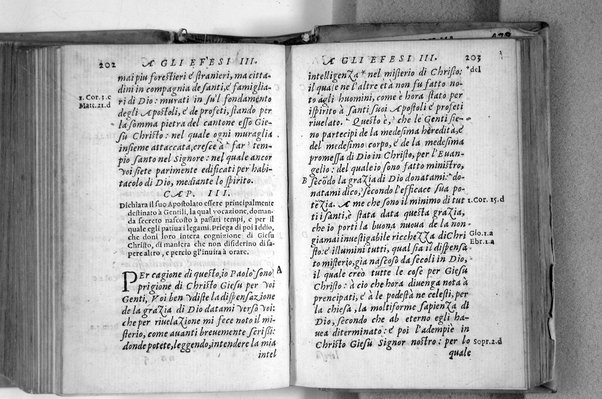 202 A GLI EFESI III.
mai piu forestieri e stranieri, ma citta
dini in compagnia de santi, e famiglia
ri di Dio: murati in su'l fondamento
degli Apostoli, e de profeti, stando per
la somma pietra del cantone esso Gie
su Christo: nel quale ogni muraglia
insieme attaccata, cresce a far tem
pio santo nel Signore: nel quale ancor
voi siete parimente edificati per habi
tacolo di Dio, mediante lo spirito.
1. Cor. 3. c
Matt. 21. d
CAP. III.
Dichiara il suo Apostolato essere principalmente
destinato à Gentili, la qual vocazione, doman-
da secreto nascosto à passati tempi, e per il
quale egli patiua i legami. Priega di poi Iddio,
che doni loro intera cognizione di Giesu
Christo, di maniera che non disiderino di sa-
pere altro, e percio gl'inuita à orare.
PEr cagione di questo, io Paolo sono A
prigione di Christo Giesu per voi
Genti, Voi ben vdiste la dispensazione
de la grazia di Dio datami verso voi:
che per riuelazione mi fece noto il mi-
sterio, come auanti breuemente scrissi:
donde potete, leggendo, intendere la mia
intel
A GLI EFESI III. 203
intelligenza nel misterio di Christo:
il quale ne l'altre età non fu fatto no-
to agli huomini, come è hora stato per
ispirito à santi suoi Apostoli e profeti
riuelato. Questo è, che le Genti sie-
no partecipi de la medesima heredità, e
del medesimo corpo, e de la medesima
promessa di Dio in Christo, per l'Euan-
gelio: del quale io sono fatto ministro,
B secõdo la grazia di Dio donatami: do-
natami dico, secondo l'efficace sua po-
tezia. A me che sono il minimo di tut
ti i santi, è stata data questa grazia,
che io porti la buona nuoua de la non
giamai inuestigabile ricchezza di Chri
sto: e illumini tutti, qual sia il dispensa-
to misterio, gia nascoso da secoli in Dio,
il quale creo tutte le cose per Giesu
Christo: à ciò che hora diuenga nota à
prencipati, e à le podestà ne celesti, per
la chiesa, la moltiforme sapienza di
Dio, secondo che ab eterno egli ha-
uea diterminato: e poi l'adempiè in
Christo Giesu Signor nostro: per lo
quale
*del
1. Cor. 15. d
Gio. 1. a
Ebr. 1. a
Sopr. 2. d